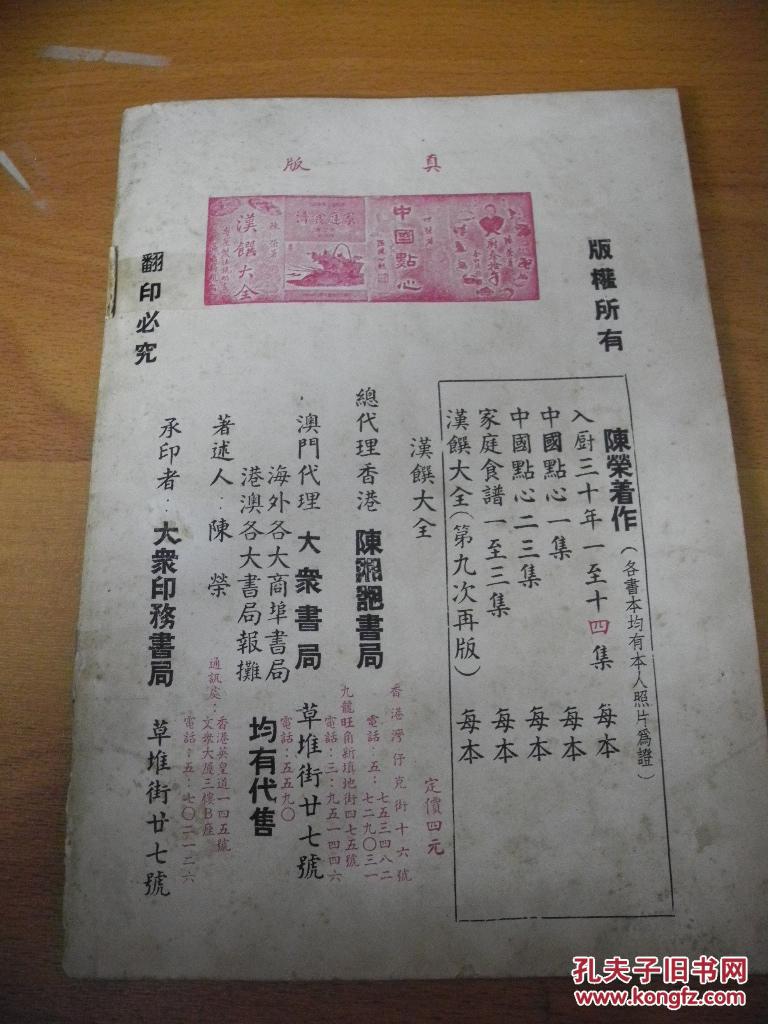 真版
中國點心
漢饌大全
版權所有
翻印必究
陳榮着作（各書本均有本人照片爲證）
入厨三十年一至十四集 每本
中國點心一集 每本
中國點心二三集 每本
家庭食譜一至三集 每本
漢饌大全（第九次再版） 每本
漢饌大全
定價四元
總代理香港 陳湘記書局
香港灣仔克街十六號
電話：五：七五三四八二
七二九〇三一
九龍旺角新填地街四七五號
電話：三：九五一四四六
澳門代理 大衆書局 草堆街廿七號
電話：五五九〇
海外各大商埠書局
港澳各大書局報攤
均有代售
著述人：陳榮
通訊處：香港英皇道一四五號
文衆大厦三樓B座
電話：五：七〇二一二六
承印者：大衆印務書局 草堆街廿七號
孔夫子旧书网
www.kongfz.com